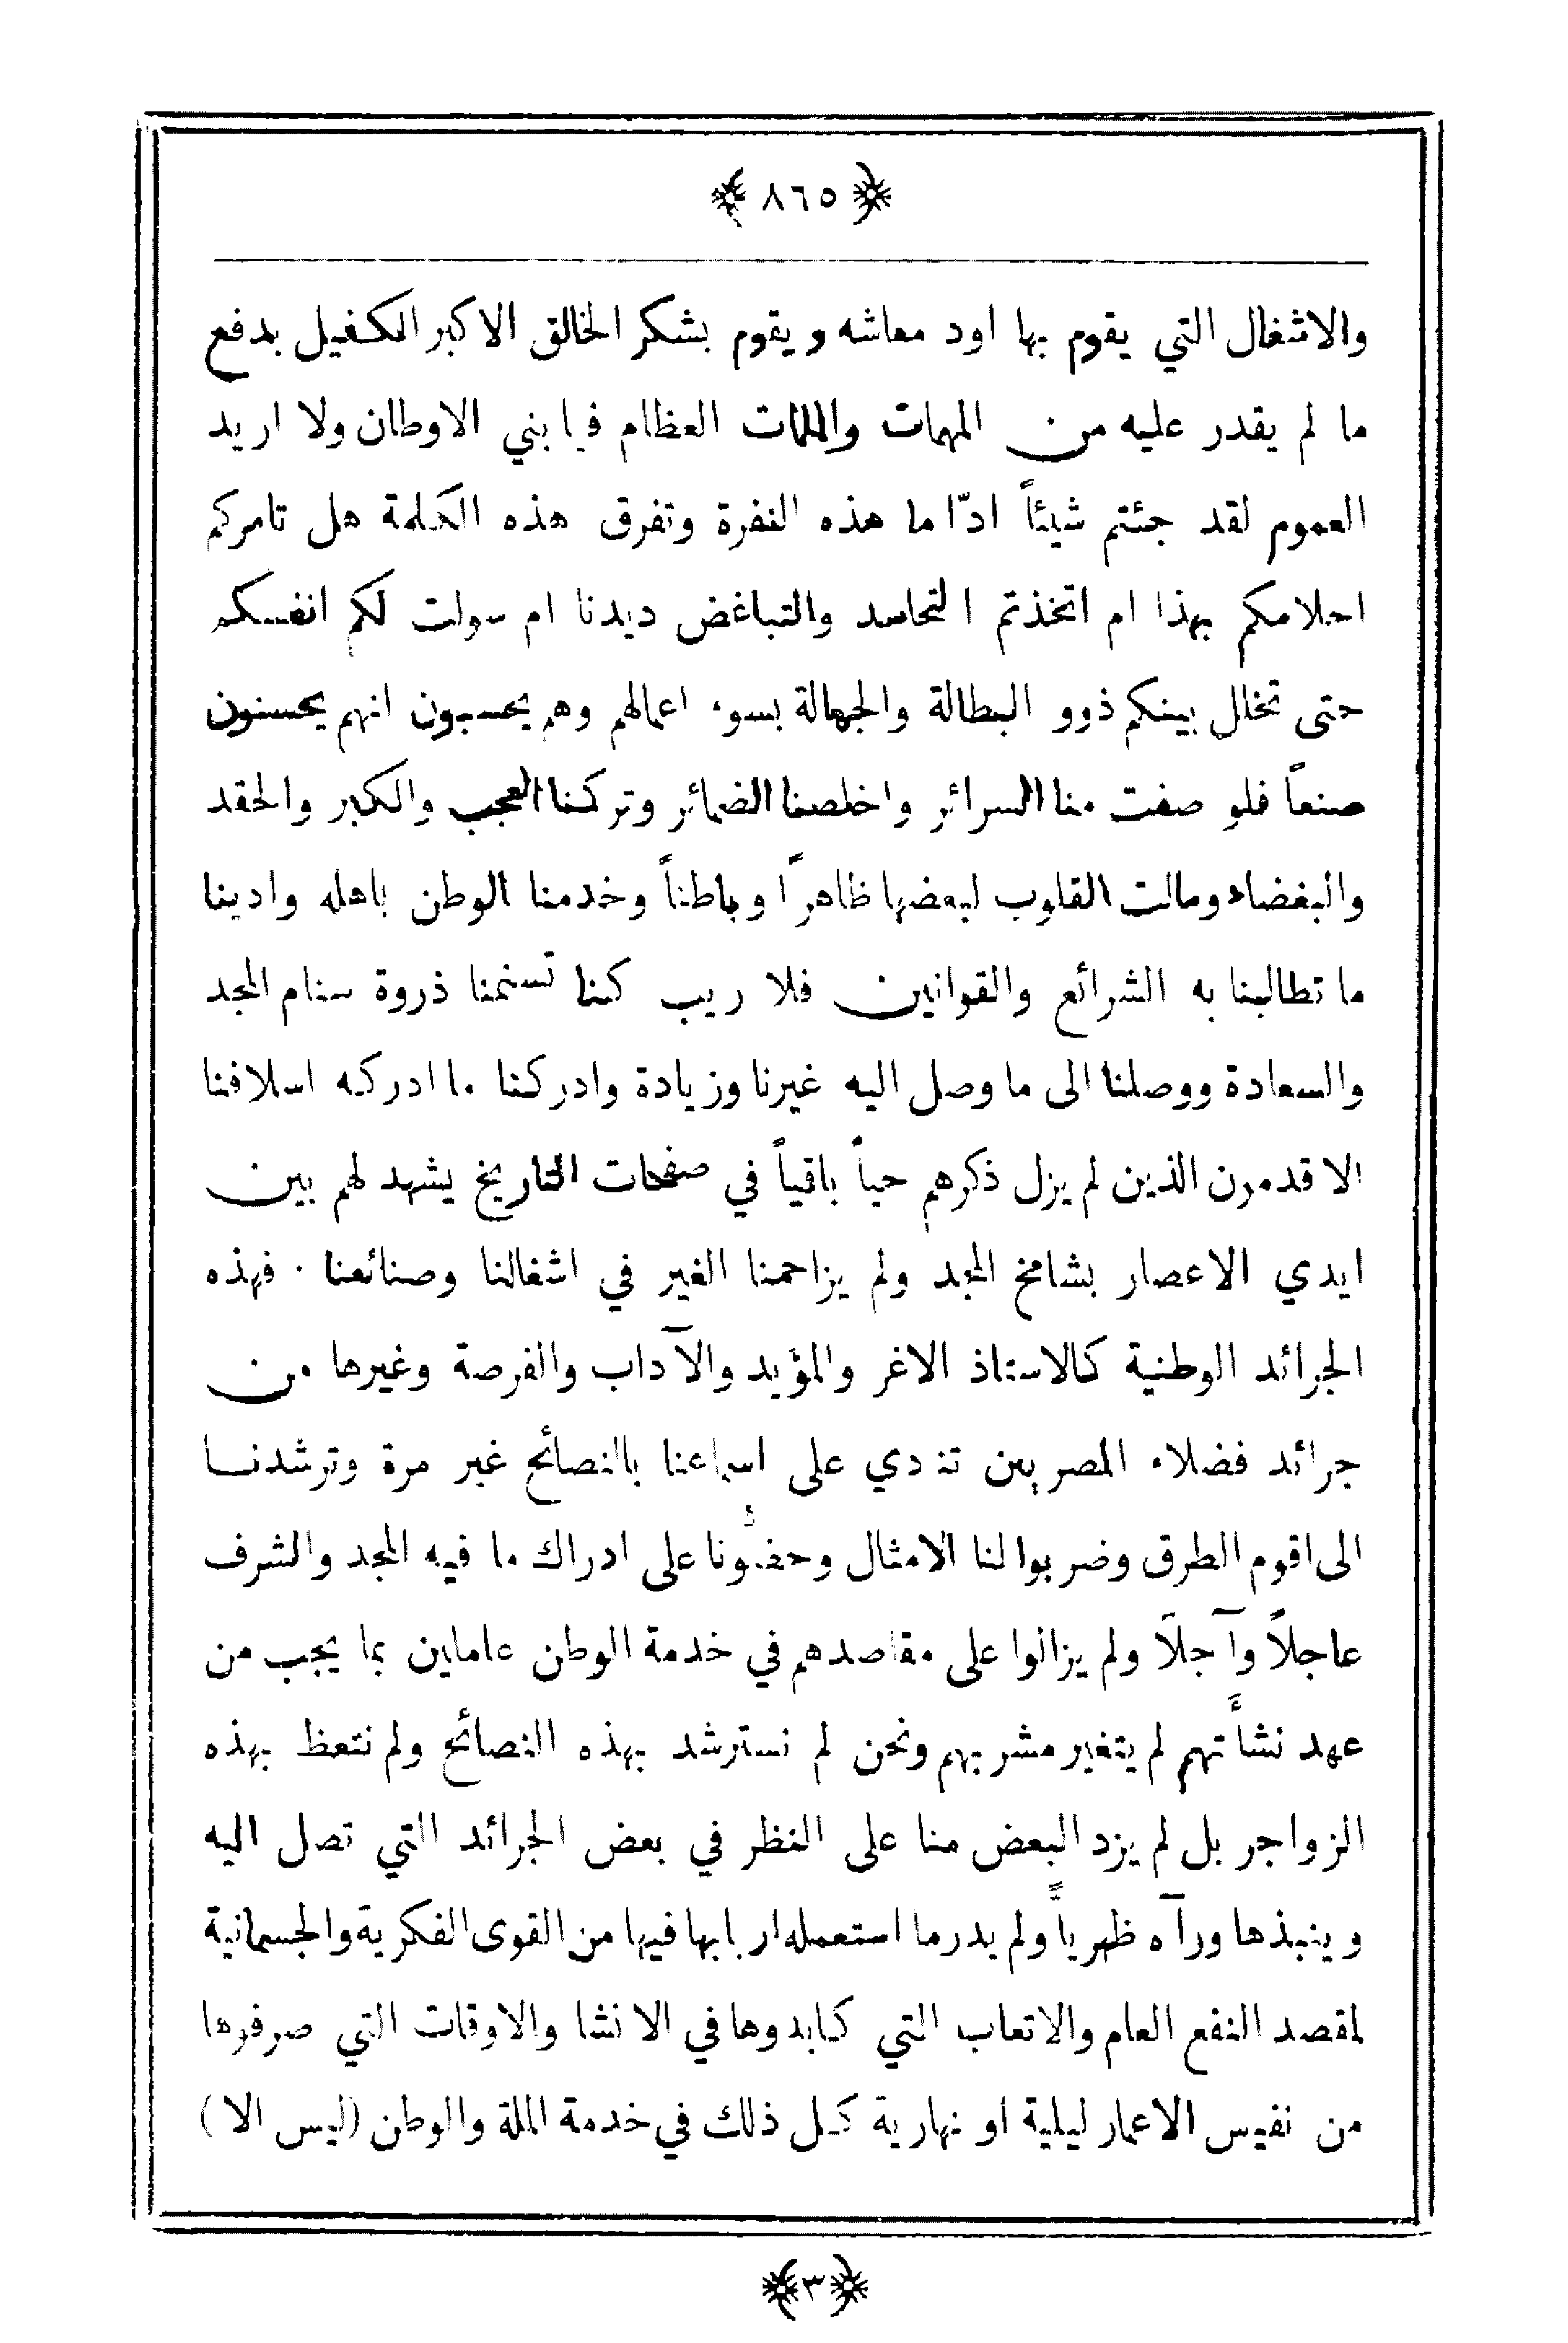 ﴿ ٨٦٥ ﴾
والاشغال التي يقوم بها اود معاشه ويقوم بشكر الخالق الاكبر الكفيل بدفع
ما لم يقدر عليه من المهمات والملمات العظام فيا بني الاوطان ولا اريد
العموم لقد جئتم شيئاً ادّا ما هذه النفرة وتفرق هذه الكلمة هل تامركم
احلامكم بهذا ام اتخذتم التحاسد والتباغض ديدنا ام سولت لكم انفسكم
حتى تخلل بينكم ذوو البطالة والجهالة بسوء اعمالهم وهم يحسبون انهم يحسنون
صنعاً فلو صفت منا السرائر واخلصنا الضمائر وتركنا العجب والكبر والحقد
والبغضاء ومالت القلوب لبعضها ظاهراً وباطناً وخدمنا الوطن باهله وادينا
ما تطالبنا به الشرائع والقوانين فلا ريب كنا تسنمنا ذروة سنام المجد
والسعادة ووصلنا الى ما وصل اليه غيرنا وزيادة وادركنا ما ادركه اسلافنا
الاقدمون الذين لم يزل ذكرهم حياً باقياً في صفحات التاريخ يشهد لهم بين
ايدي الاعصار بشامخ المجد ولم يزاحمنا الغير في اشغالنا وصنائعنا . فهذه
الجرائد الوطنية كالاستاذ الاغر والمؤيد والآداب والفرصة وغيرها من
جرائد فضلاء المصريين تنادي على اسماعنا بالنصائح غير مرة وترشدنا
الى اقوم الطرق وضربوا لنا الامثال وحضؤنا على ادراك ما فيه المجد والشرف
عاجلاً وآجلاً ولم يزالوا على مقاصدهم في خدمة الوطن عاملين بما يجب من
عهد نشأتهم لم يتغير مشربهم ونحن لم نسترشد بهذه النصائح ولم نتعظ بهذه
الزواجر بل لم يزد البعض منا على النظر في بعض الجرائد التي تصل اليه
وينبذها ورآه ظهرياً ولم يدر ما استعمله اربابها فيها من القوى الفكرية والجسمانية
لمقصد النفع العام والاتعاب التي كابدوها في الانشا والاوقات التي صرفوها
من نفيس الاعمار ليلية او نهارية كل ذلك في خدمة الملة والوطن (ليس الا)
﴿٣﴾